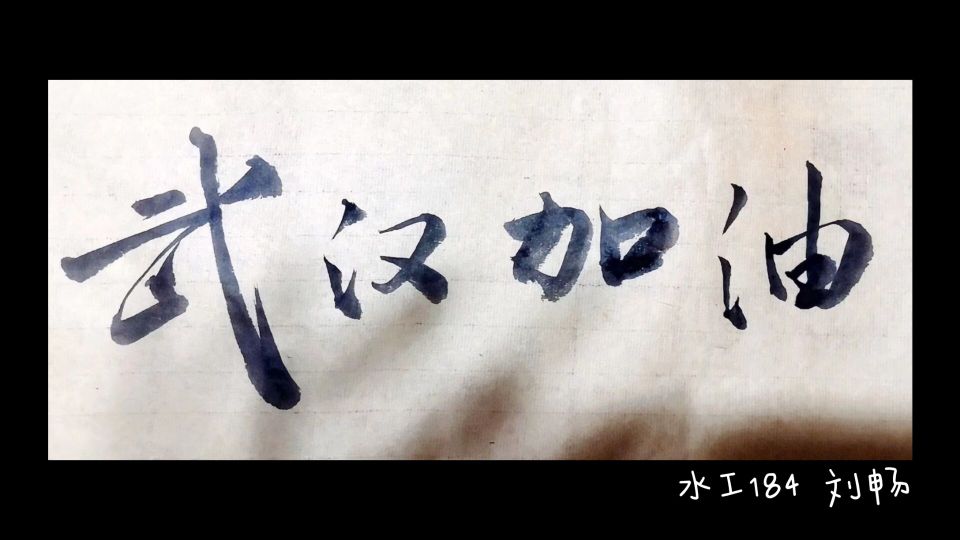 武汉加油
水工184 刘畅